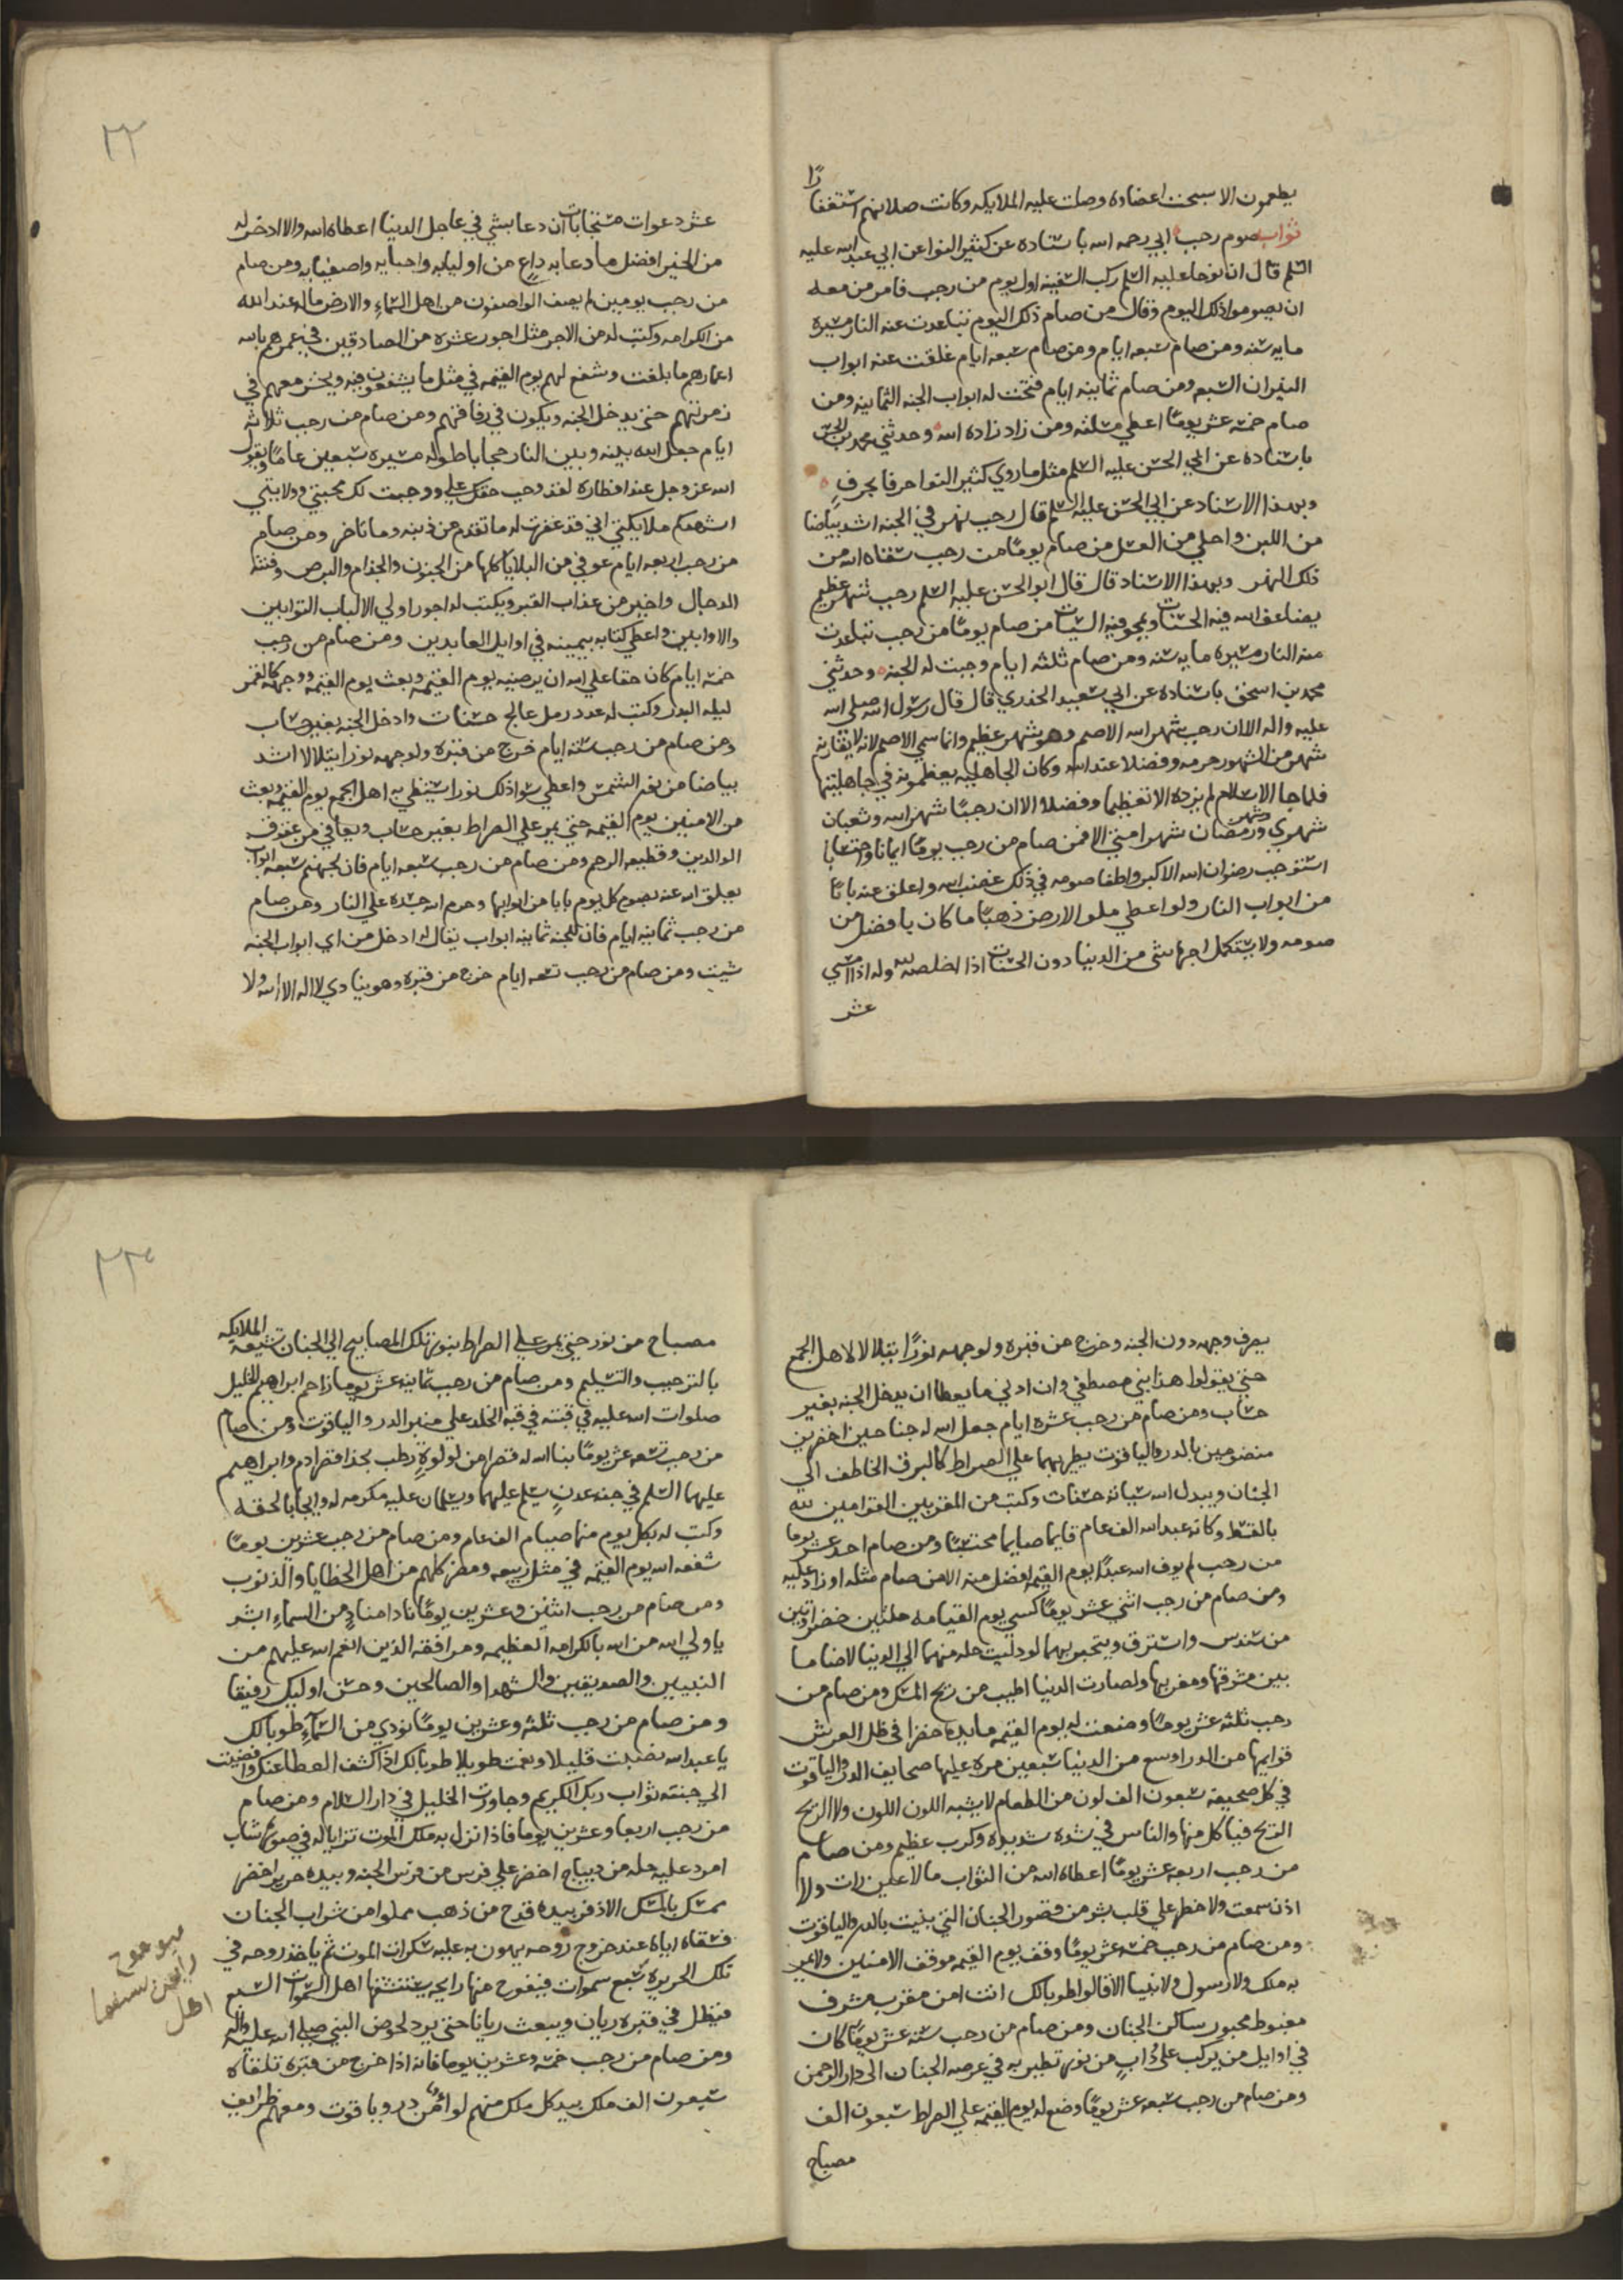 يطعمون الا سبحت اعضاده وصلت عليه الملايكه وكانت صلاتهم استغفارًا
ثواب صوم رجب ابي رحمه الله باسناده عن كثير النوا عن ابي عبد الله عليه
السلم قال ان نوحا عليه السلم ركب السفينه اول يوم من رجب فامر من معه
ان يصوموا ذلك اليوم وقال من صام ذلك اليوم تباعدت عنه النار مسيره
مايه سنه ومن صام سبعه ايام ومن صام سبعه ايام غلقت عنه ابواب
النيران السبعه ومن صام ثمانيه ايام فتحت له ابواب الجنه الثمانيه ومن
صام خمسه عشر يومًا اعطي مسلته ومن زاد زاده الله وحدثني محمد بن الحسن
باسناده عن ابي الحسن عليه السلم مثل ما روي كثير النوا حرفا بحرفٍ
وبهذا الاسناد عن ابي الحسن عليه السلم قال رجب نهر في الجنه اشد بياضا
من اللبن واحلي من العسل من صام يومًا من رجب سقاه الله من
ذلك النهر وبهذا الاسناد قال قال ابو الحسن عليه السلم رجب شهر عظيم
يضاعف الله فيه الحسنات ويمحو فيه السيات من صام يومًا من رجب تباعدت
منه النار مسيره مايه سنه ومن صام ثلثه ايام وجبت له الجنه وحدثني
محمد بن اسحق باسناده عن ابي سعيد الخدري قال قال رسول الله صلى الله
عليه واله الا ان رجب شهر الله الاصم وهو شهر عظيم وانما سمي الاصم لانه لا يقارنه
شهر من الشهور حرمه وفضلا عند الله وكان الجاهليه يعظمونه في جاهليتها
فلما جا الاسلام لم يزده الا تعظيما وفضلا الا ان رجبًا شهر الله وشعبان
شهري وشهر رمضان شهر امتي الا فمن صام من رجب يومًا ايمانا واحتسابا
استوجب رضوان الله الاكبر واطفا صومه في ذلك غضب الله واغلق عنه بابًا
من ابواب النار ولو اعطي ملو الارض ذهبًا ما كان بافضل من
صومه ولا يستكمل اجره شي من الدنيا دون الحسنات اذا اخلصه لله وله اذا امسي
عشر
عشر دعوات مستجابات ان دعا بشي في عاجل الدنيا اعطاه الله والا ادخر له
من الخير افضل ما دعا به داعٍ من اوليايه واحبايه واصفيايه ومن صام
من رجب يومين لم يصف الواصفون من اهل السماءِ والارض ماله عند الله
من الكرامه وكتب له من الاجر مثل اجور عشره من الصادقين في عمرهم بالغه
اعمارهم ما بلغت وشفع لهم يوم القيمه في مثل ما يشفعون فيه ويحشر معهم في
زمرتهم حتي يدخل الجنه ويكون في رفاقتهم ومن صام من رجب ثلاثه
ايام جعل الله بينه وبين النار حجابا طوله مسيره سبعين عامًا ويقول
الله عز وجل عند افطاره لقد وجب حقك علي ووجبت لك محبتي وولايتي
اشهدكم ملايكتي اني قد غفرت له ما تقدم من ذنبه وما تاخر ومن صام
من رجب اربعه ايام عوفي من البلايا كلها من الجنون والجذام والبرص وفتنة
الدجال واجير من عذاب القبر ويكتب له اجور اولي الالباب التوابين
والاوابين واعطي كتابه بيمينه في اوايل العابدين ومن صام من رجب
خمسه ايام كان حقا علي الله ان يرضيه يوم القيمه وبعث يوم القيمه ووجهه كالقمر
ليله البدر وكتب له عدد رمل عالج حسنات وادخل الجنه بغير حساب
ومن صام من رجب سته ايام خرج من قبره ولوجهه نور ايتلالا اشد
بياضا من نور الشمس واعطي سوا ذلك نورا يستضي به اهل الجمع يوم القيمه وبعث
من الامنين يوم القيمه حتي يمر علي الصراط بغير حساب ويعافي من عقوق
الوالدين وقطيعه الرحم ومن صام من رجب سبعه ايام فان لجهنم سبعه ابواب
يغلق الله عنه بصوم كل يوم بابا من ابوابها وحرم الله جسده علي النار ومن صام
من رجب ثمانيه ايام فان للجنه ثمانيه ابواب يقال له ادخل من اي ابواب الجنه
شيت ومن صام من رجب تسعه ايام خرج من قبره وهو ينادي لا اله الا الله ولا
يصرف وجهه دون الجنه وخرج من قبره ولوجهه نورًا يتلالا لاهل الجمع
حتي يقولوا هذا نبي مصطفي وان ادني ما يعطا ان يدخل الجنه بغير
حساب ومن صام من رجب عشره ايام جعل الله له جناحين اخضرين
منضومين بالدر والياقوت يطير بهما علي الصراط كالبرق الخاطف الي
الجنان ويبدل الله سياته حسنات وكتب من المقربين القوامين لله
بالقسط وكانه عبد الله الف عام قايما صايما محتسبًا ومن صام احد عشر يوما
من رجب لم يوف الله عبدًا يوم القيمه افضل منه الا من صام مثله او زاد عليه
ومن صام من رجب اثني عشر يومًا كسي يوم القيامه حلتين خضراوتين
من سندس واسترق ويتحبر بهما لو دليت حله منهما الي الدنيا لاضا ما
بين مشرقها ومغربها ولصارت الدنيا اطيب من ريح المسك ومن صام من
رجب ثلثه عشر يومًا وضعت له يوم القيمه مايده خضرا في ظل العرش
قوايمها من الدر اوسع من الدنيا سبعين مره عليها صحايف الدر والياقوت
في كل صحيفه سبعون الف لون من الطعام لا يشبه اللون اللون ولا الريح
الريح فيا كل منها والناس في شده شديده وكرب عظيم ومن صام
من رجب اربعه عشر يومًا اعطاه الله من الثواب ما لا عين رات ولا
اذن سمعت ولا خطر علي قلب بشر من قصور الجنان التي بنيت بالدر والياقوت
ومن صام من رجب خمسه عشر يومًا وقف يوم القيمه موقف الامنين ولا يمر
به ملك ولا رسول ولا نبيا الا قالوا طوبا لك انت امن مقرب مشرف
مغبوط محبور ساكن الجنان ومن صام من رجب سته عشر يومًا كان
في اوايل من يركب علي دُابٍ من نور تطير به في عرصه الجنان الي دار الرحمن
ومن صام من رجب سبعه عشر يومًا وضع له يوم القيمه علي الصراط سبعون الف
مصباح
مصباح من نور حتي يمر علي الصراط بنور تلك المصابيح الي الجنان تشيعه الملايكه
بالترحيب والتسليم ومن صام من رجب ثمانيه عشر يوما زاحم ابراهيم الخليل
صلوات الله عليه في قبته في قبه الخلد علي منبر الدر والياقوت ومن صام
من رجب تسعه عشر يومًا بنا الله له قصرا من لولوةٍ رطب بحذا قصر ادم وابراهيم
عليهما السلم في جنه عدنٍ يسلم عليهما ويسلمان عليه مكرمه له وايجابا لحقه
وكتب له بكل يوم منها صيام الف عام ومن صام من رجب عشرين يومًا
شفعه الله يوم القيمه في مثل ربيعه ومضر كلهم من اهل الخطايا والذنوب
ومن صام من رجب اثنين وعشرين يومًا نادا منادٍ من السماءِ ابشر
يا ولي الله من الله بالكرامه العظيمه ومرافقه الذين انعم الله عليهم من
النبيين والصديقين والشهدا والصالحين وحسن اوليك رفيقا
ومن صام من رجب ثلثه وعشرين يومًا نودي من السمآءِ طوبا لك
يا عبد الله نصبت قليلا ونعمت طويلا طوبا لك اذا كشف الغطا عنك وافضيت
الي جنته ثواب ربك الكريم وجاورت الخليل في دار السلام ومن صام
من رجب اربعا وعشرين يوما فاذا نزل به ملك الموت تزايا له في صورة شاب
امرد عليه حله من ديباج اخضر علي فرس من فرس الجنه وبيده حرير اخضر
ممسك بالمسك الاذفر بيده قدح من ذهب مملوا من شراب الجنان
فسقاه اياه عند خروج روحه يهون به عليه سكرات الموت ثم ياخذ روحه في
تلك الحريره سبع سموات فيفوح منها رايحه يستنشقها اهل السموات السبع
فيظل في قبره ريان ويبعث ريانا حتي يرد لحوض النبي صلي الله عليه واله
ومن صام من رجب خمسه وعشرين يوما فانه اذا خرج من قبره تلقاه
سبعون الف ملك بيد كل ملك منهم لوا من در وياقوت ومعهم ظرايف